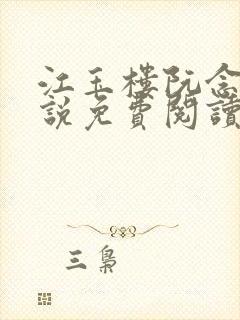 江玉楼阮念
說免費閱讀
三梟